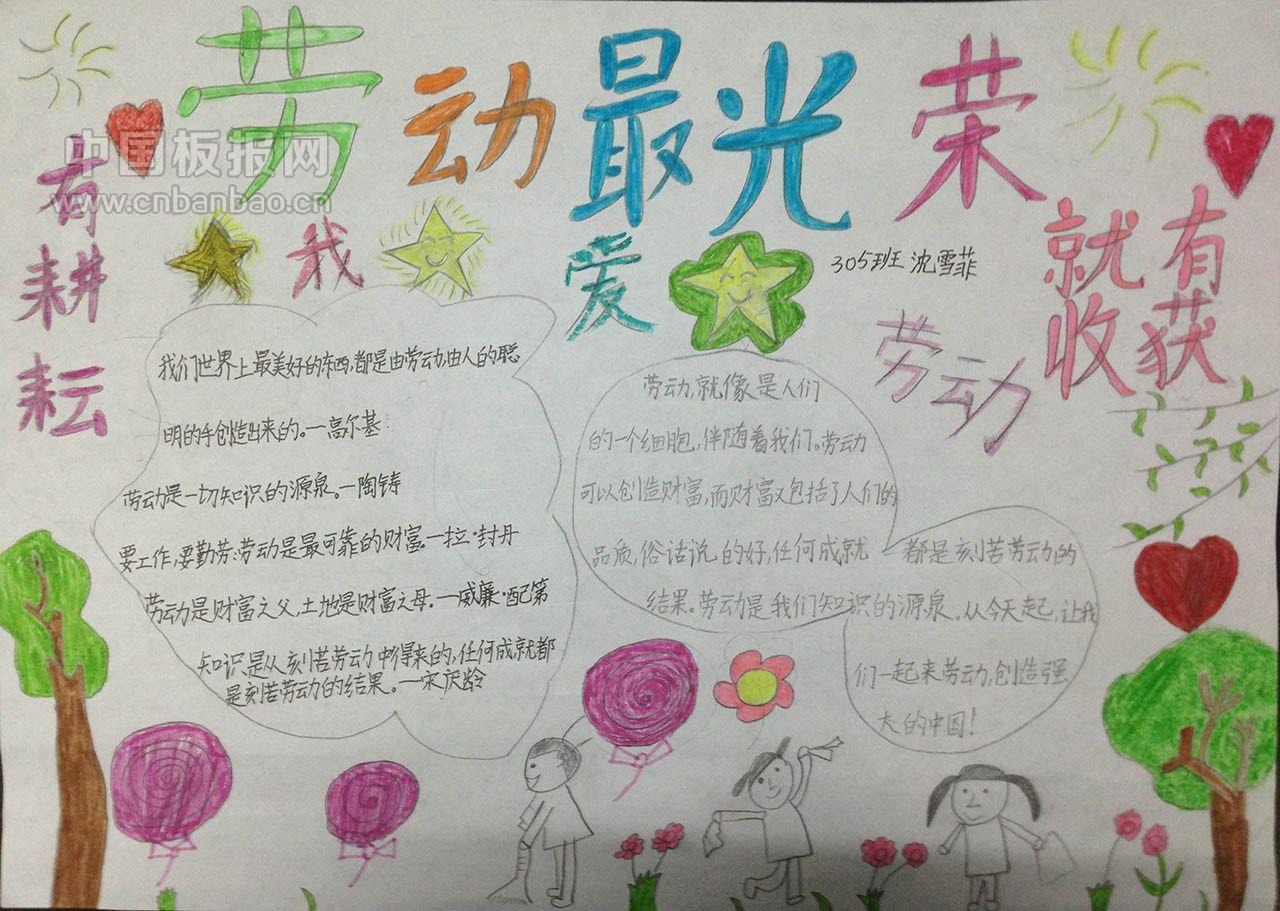 劳动最光荣
中国板报网
www.cnbanbao.cn
有耕耘
就有收获
我爱劳动
305班 沈雪菲
我们世界上最美好的东西,都是由劳动,由人的聪
明的手创造出来的。—高尔基
劳动是一切知识的源泉。—陶铸
要工作,要勤劳:劳动是最可靠的财富。—拉·封丹
劳动是财富之父,土地是财富之母。—威廉·配第
知识是从刻苦劳动中得来的,任何成就都
是刻苦劳动的结果。—宋庆龄
劳动,就像是人们
的一个细胞,伴随着我们。劳动
可以创造财富,而财富又包括了人们的
品质,俗话说的好,任何成就 都是刻苦劳动的
结果。劳动是我们知识的源泉。从今天起,让我
们一起来劳动,创造强
大的中国!